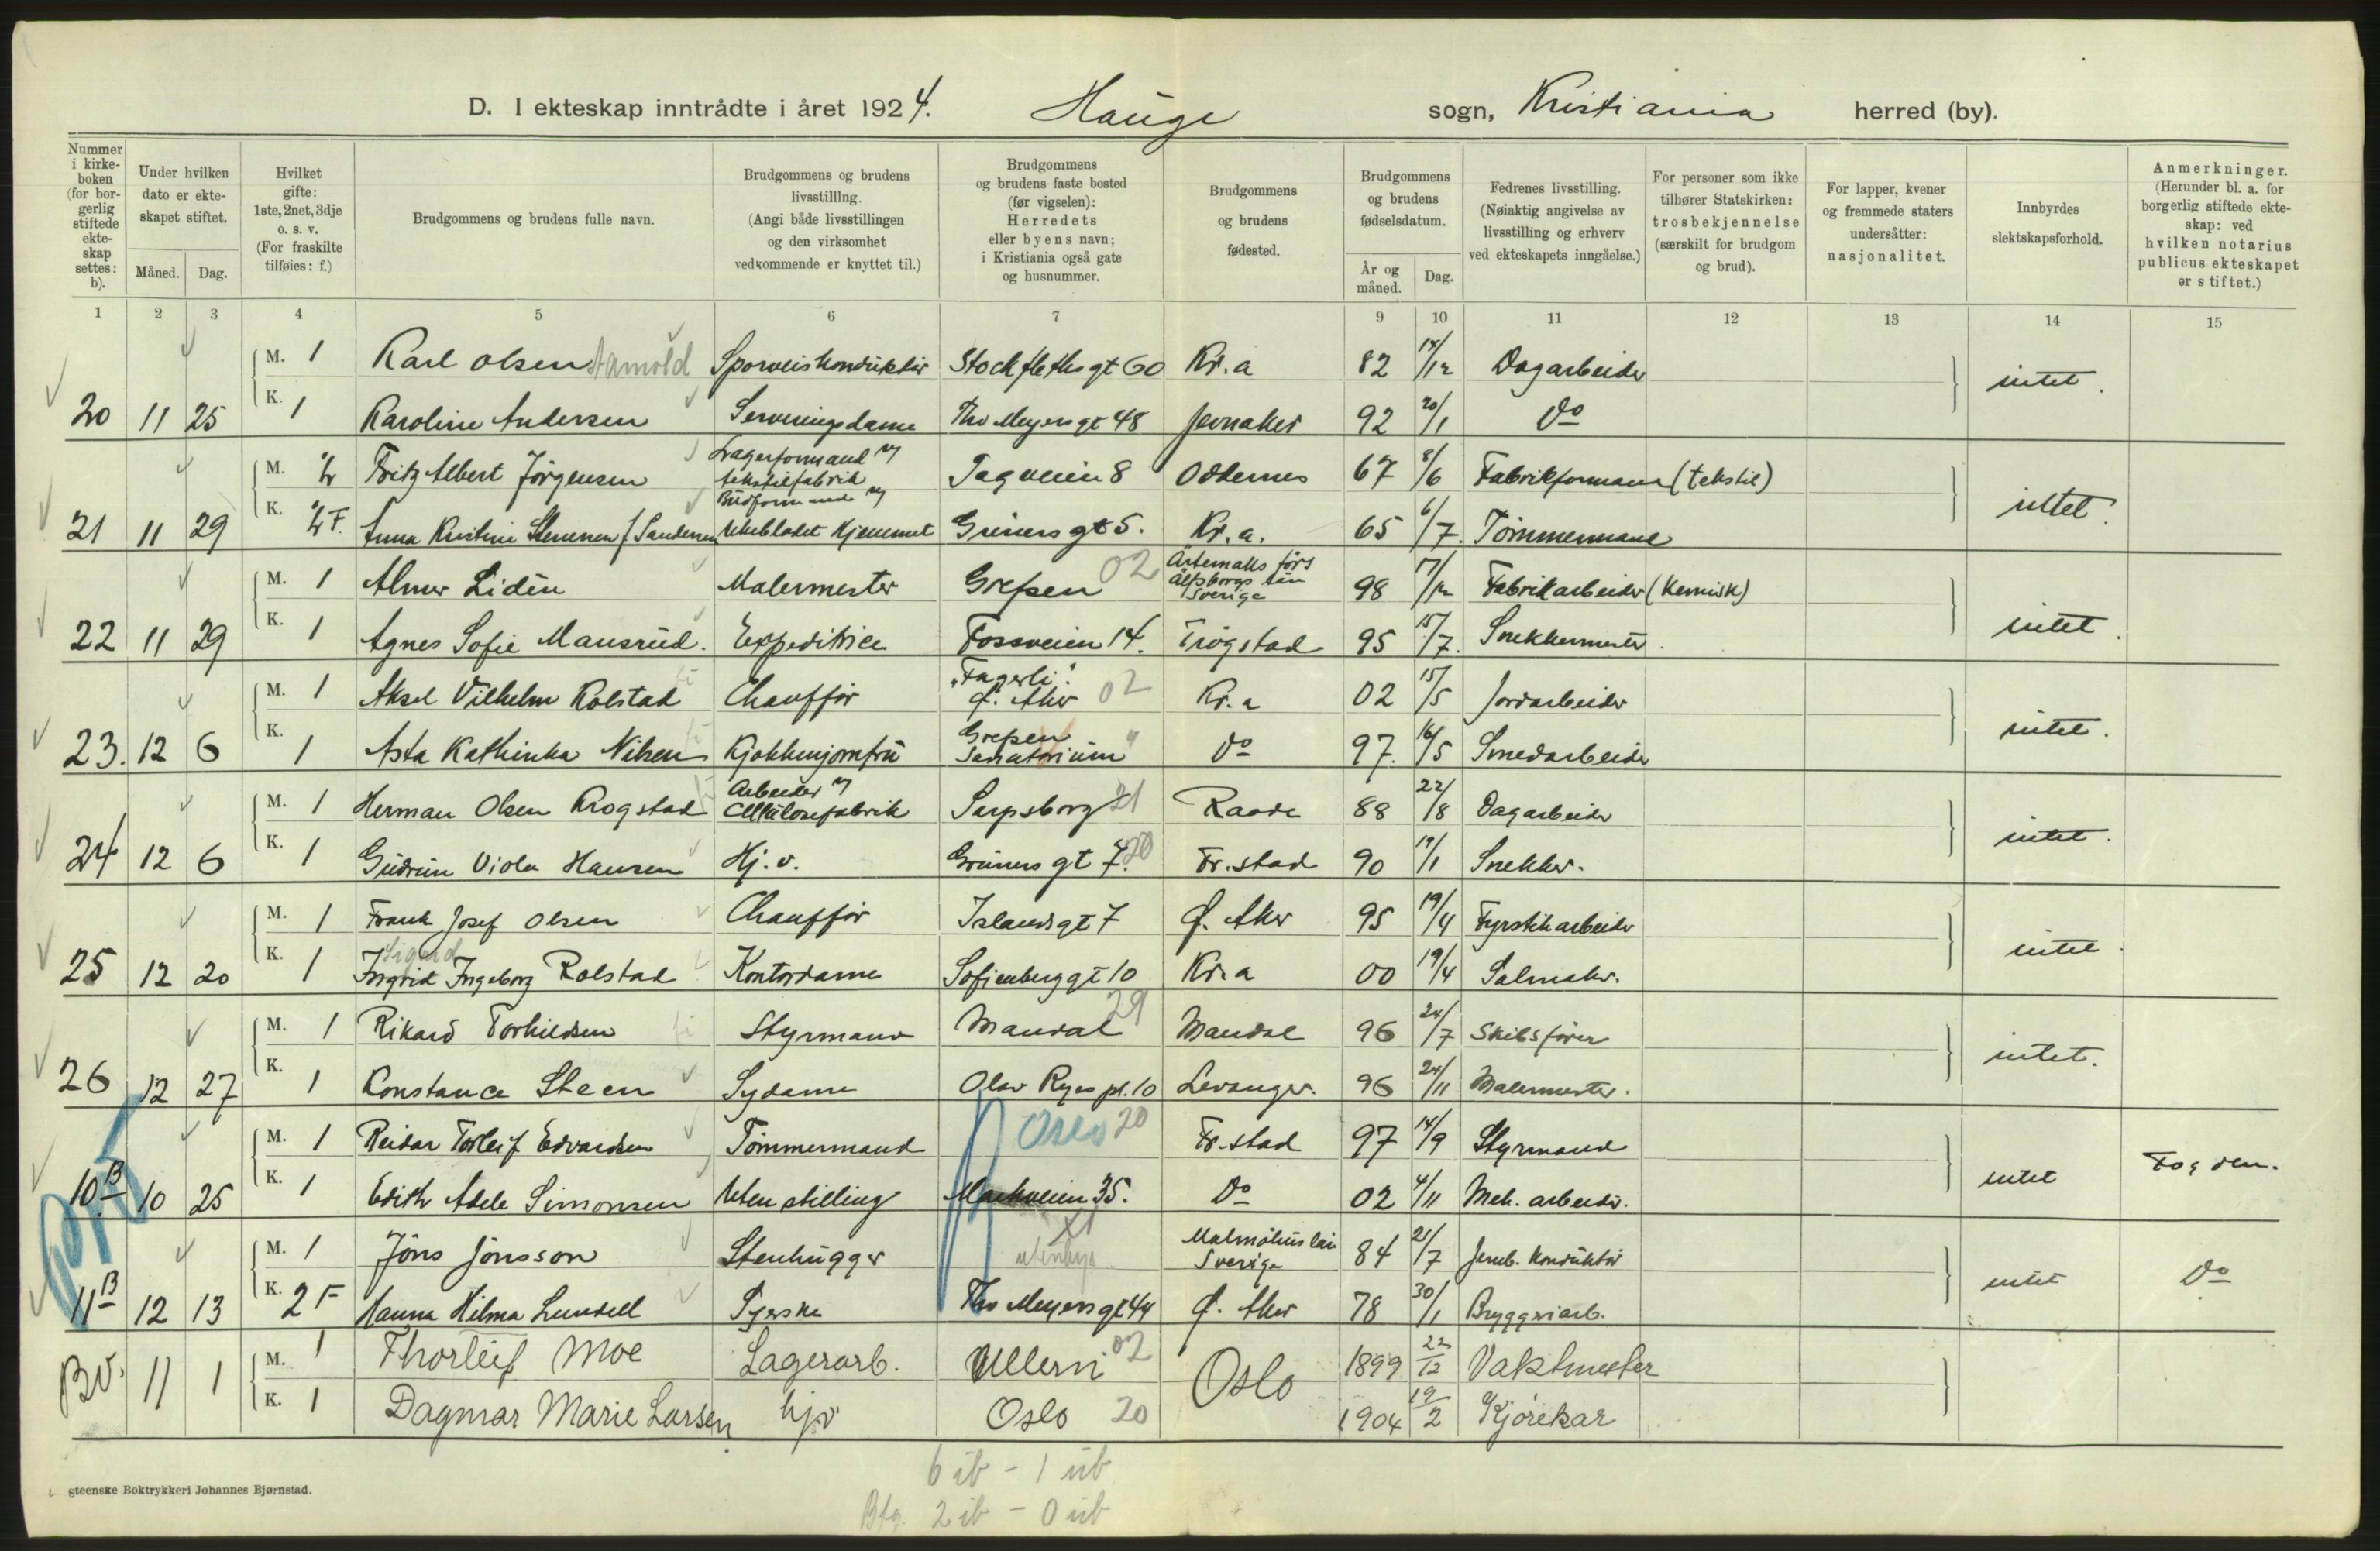 D. I ekteskap inntrådte i året 1924. Hauge sogn, Kristiania herred (by).
Nummer i kirkeboken (for borgerlig stiftede ekteskap settes: b).
Under hvilken dato er ekteskapet stiftet.
Måned. Dag.
Hvilket gifte: 1ste, 2net, 3dje o. s. v. (For fraskilte tilføies: f.)
Brudgommens og brudens fulle navn.
Brudgommens og brudens livsstilllng. (Angi både livsstillingen og den virksomhet vedkommende er knyttet til.)
Brudgommens og brudens faste bosted (før vigselen): Herredets eller byens navn; i Kristiania også gate og husnummer.
Brudgommens og brudens fødested.
Brudgommens og brudens fødselsdatum.
År og måned. Dag.
Fedrenes livsstilling. (Nøiaktig angivelse av livsstilling og erhverv ved ekteskapets inngåelse.)
For personer som ikke tilhører Statskirken: trosbekjennelse (særskilt for brudgom og brud).
For lapper, kvener og fremmede staters undersåtter: nasjonalitet.
Innbyrdes slektskapsforhold.
Anmerkninger. (Herunder bl. a. for borgerlig stiftede ekteskap: ved hvilken notarius publicus ekteskapet er stiftet.)
1 2 3 4 5 6 7 9 10 11 12 13 14 15
M. 1 Karl Olsen Arnold Sporveiskonduktør Stockfleths gt 60 Kr.a 82 18/12 Dagarbeider intet.
20 11 25 K. 1 Karoline Andersen Serveringsdame Thv Meyers gt 48 Jevnaker 92 20/1 Do
M. 2 Fritz Albert Jörgensen Lagerformand v tekstilfabrik Tagveien 8 Oddernes 67 8/6 Fabrikformann (tekstil) intet.
21 11 29 K. 2 F. Anna Kristine Stenersen f Sandersen Budformand v Ukebladet Hjemmet Grüners gt 5. Kr.a. 65 6/7. Tömmermand
M. 1 Almer Lidén Malermester Grefsen 02 Ärtemarks förs Älfsborgs län Sverige 98 17/12 Fabrikarbeider (kemisk) intet.
22 11 29 K. 1 Agnes Sofie Mansrud. Expeditrice Fossveien 14. Trögstad 95 15/7. Snekkermester
M. 1 Aksel Vilhelm Kolstad Chauffør "Fagerli". Ø. Aker 02 Kr.a 02 15/5 Jordarbeider intet.
23. 12 6 K. 1 Asta Kathinka Nilsen Kjøkkenjomfru Grefsen Sanatorium Do 97. 16/5 Smedarbeider
M. 1 Herman Olsen Krogstad Arbeider v Cellulosefabrik Sarpsborg 21 Raade 88 22/8 Dagarbeider intet.
24 12 6 K. 1 Gudrun Viola Hansen Hj. v. Grüners gt 7. 20 Fr.stad 90 19/1 Snekker.
M. 1 Frank Josef Olsen Chauffør Islands gt 7 Ø. Aker 95 19/4 Fyrstikkarbeider intet.
Sigrid
25 12 20 K. 1 Ingrid Ingeborg Rolstad Kontordame Sofienberg gt 10 Kr.a 00 19/4 Salmaker.
M. 1 Rikard Torkildsen Styrmand Mandal 29 Mandal 96 24/7 Skibsfører intet.
26 12 27 K. 1 Konstance Steen Sydame Olav Ryes pl. 10 Levanger. 96 24/11 Malermester.
M. 1 Reidar Torleif Edvardsen Tömmermand Oslo 20 Fr.stad 97 14/9 Styrmand intet Fogden.
10 B 10 25 K. 1 Edith Adele Simonsen Uten stilling Markveien 35. Do 02 4/11 Mek. arbeider.
M. 1 Jöns Jönsson Stenhugger utenbys Malmöhus län Sverige 84 21/7 Jernb. konduktør intet Do
11 B 12 13 K. 2 F Hanna Hilma Lundell Syerske Thv Meyers gt 44 Ø. Aker 78 30/1 Bryggeriarb.
M. 1 Thorleif Moe Lagerarb. Ullern 02 Oslo 1899 22/12 Vaktmester
BV. 11 1 K. 1 Dagmar Marie Larsen hjv Oslo 20 1904 19/2 Kjørekar
6 ib - 1 ub
Bfg. 2 ib - 0 ub
steenske Boktrykkeri Johannes Bjørnstad.